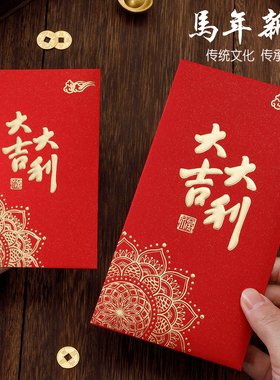 馬年新
传统文化 传承
大吉
大利
大吉
大利